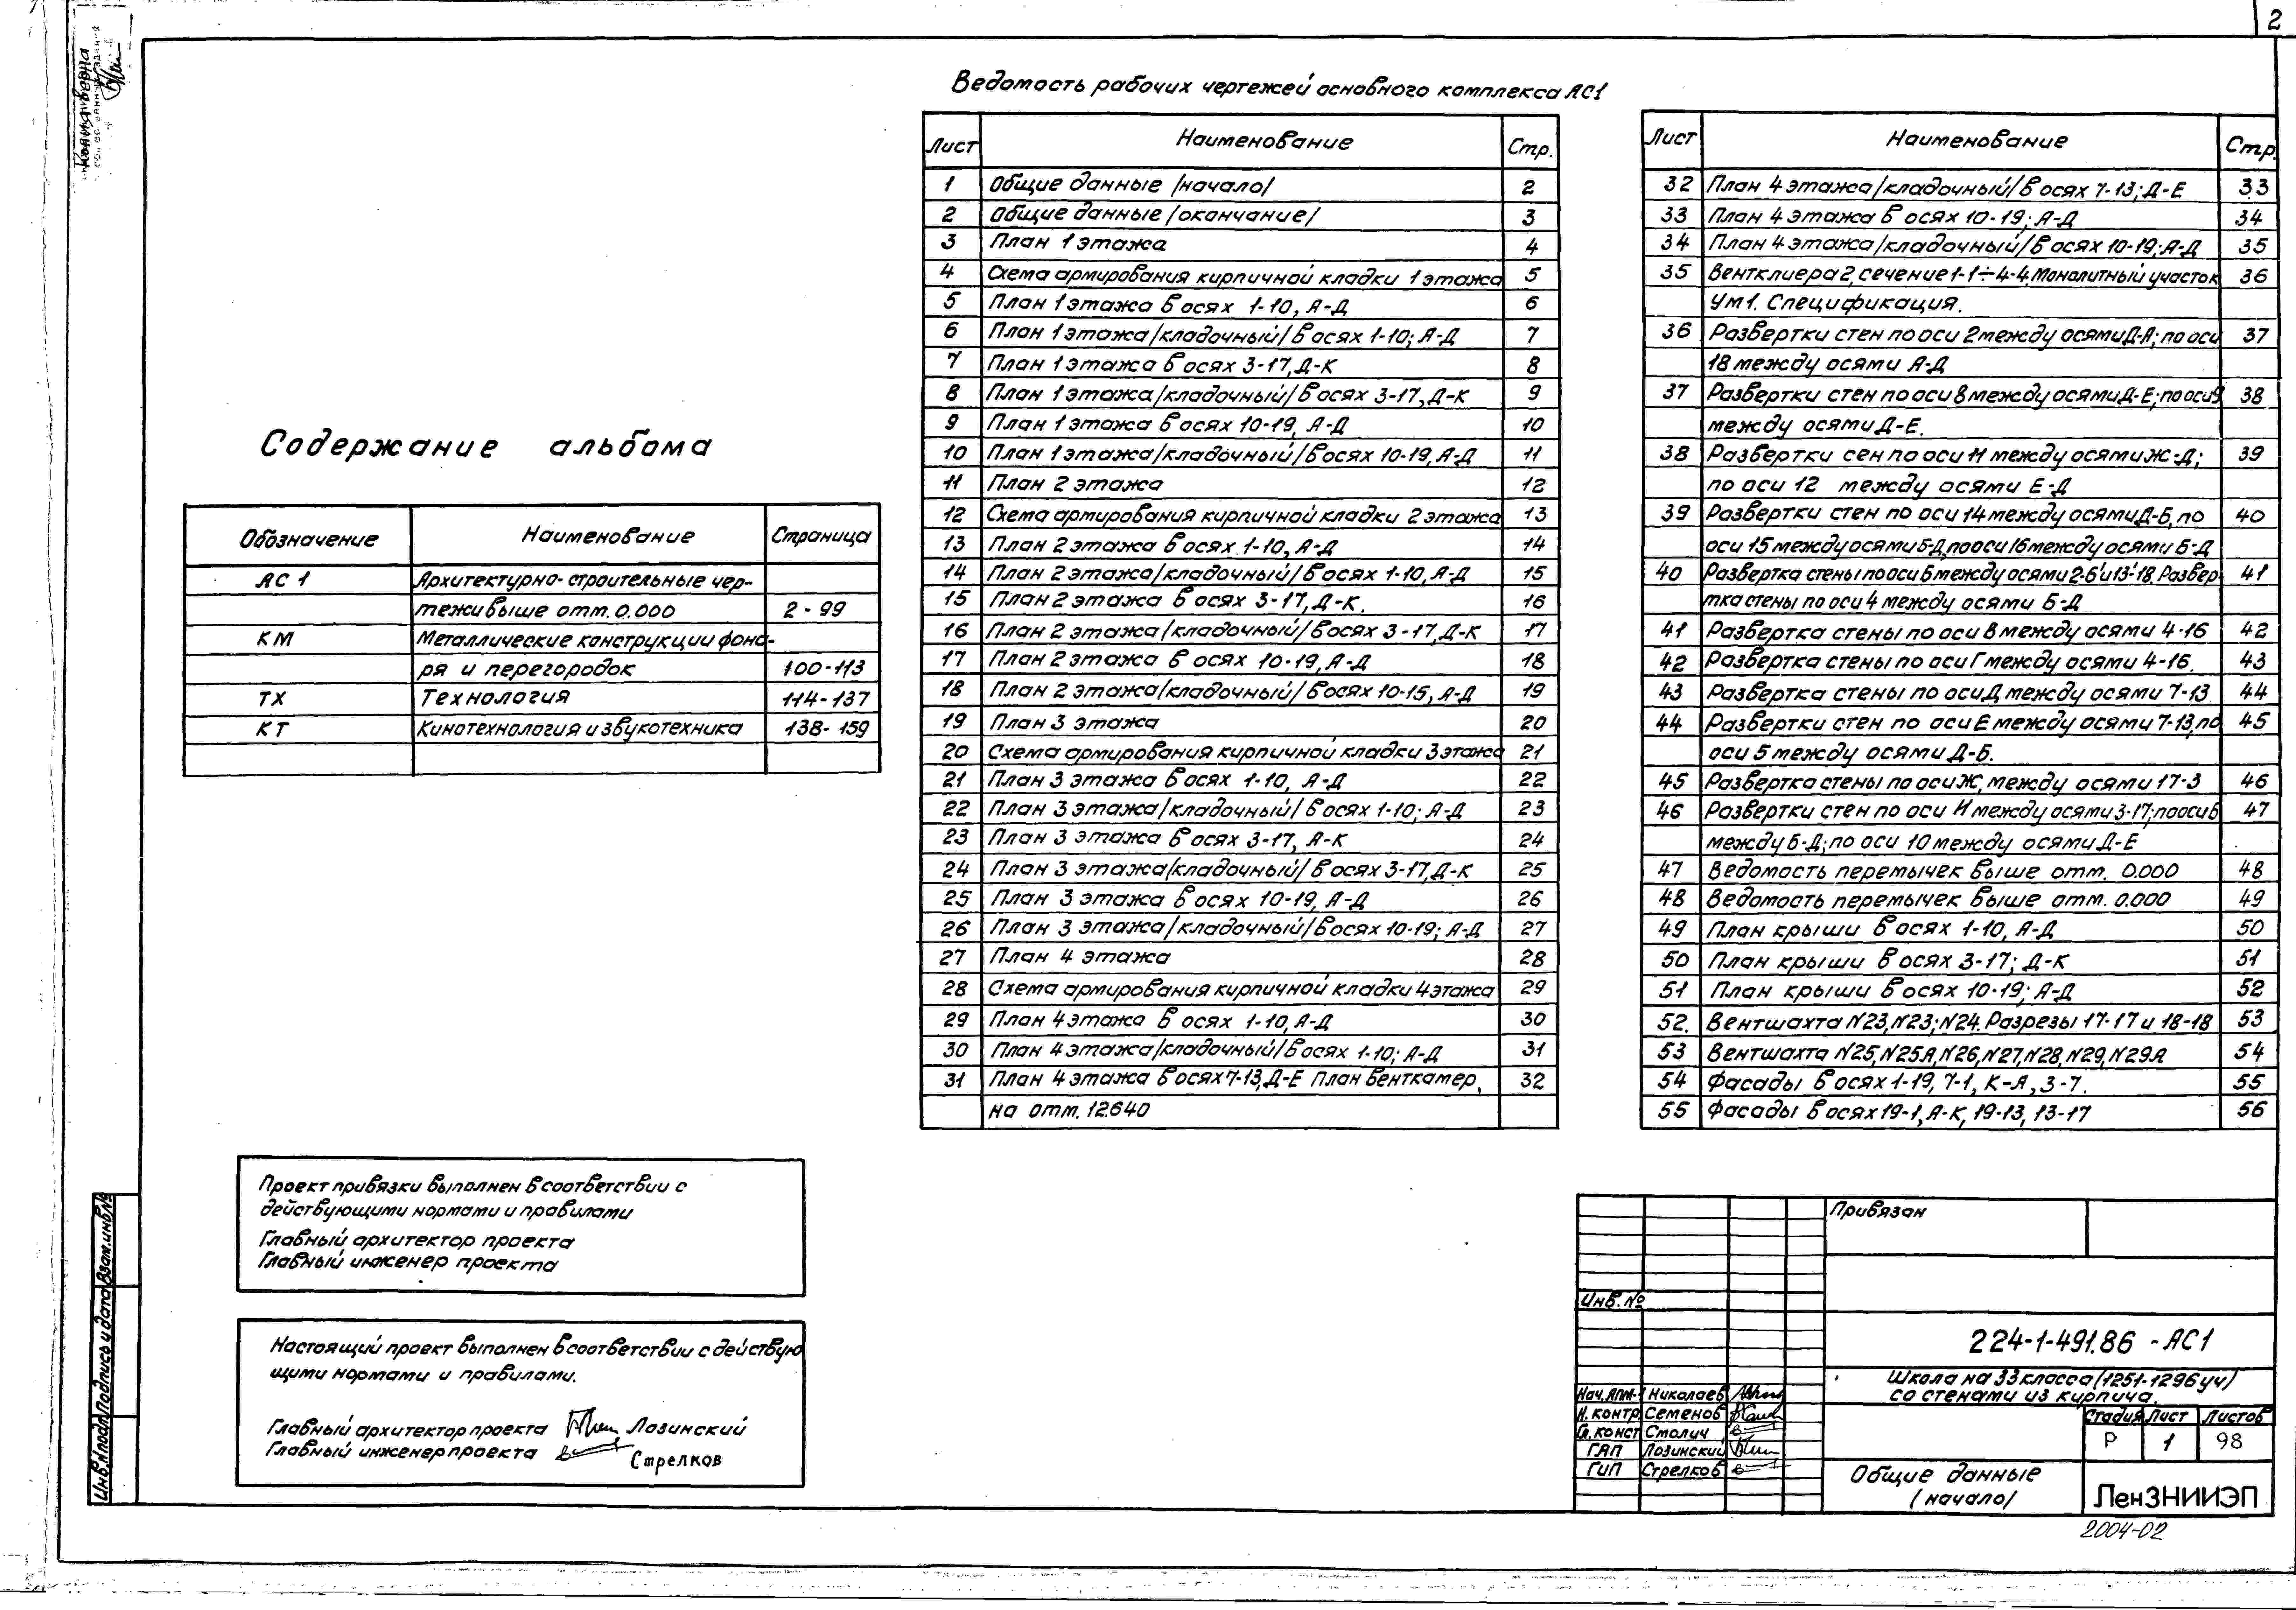 2
Копия верна
Ведомость рабочих чертежей основного комплекса АС1
Лист Наименование Стр.
1 Общие данные /начало/ 2
2 Общие данные /окончание/ 3
3 План 1 этажа 4
4 Схема армирования кирпичной кладки 1 этажа 5
5 План 1 этажа в осях 1-10, А-Д 6
6 План 1 этажа/кладочный/в осях 1-10; А-Д 7
7 План 1 этажа в осях 3-17, Д-К 8
8 План 1 этажа/кладочный/в осях 3-17, Д-К 9
9 План 1 этажа в осях 10-19, А-Д 10
10 План 1 этажа/кладочный/в осях 10-19, А-Д 11
11 План 2 этажа 12
12 Схема армирования кирпичной кладки 2 этажа 13
13 План 2 этажа в осях 1-10, А-Д 14
14 План 2 этажа/кладочный/в осях 1-10, А-Д 15
15 План 2 этажа в осях 3-17, Д-К. 16
16 План 2 этажа/кладочный/в осях 3-17, Д-К 17
17 План 2 этажа в осях 10-19, А-Д 18
18 План 2 этажа/кладочный/ в осях 10-15, А-Д 19
19 План 3 этажа 20
20 Схема армирования кирпичной кладки 3 этажа 21
21 План 3 этажа в осях 1-10, А-Д 22
22 План 3 этажа/кладочный/ в осях 1-10; А-Д 23
23 План 3 этажа в осях 3-17, А-К 24
24 План 3 этажа/кладочный/ в осях 3-17, Д-К 25
25 План 3 этажа в осях 10-19, А-Д 26
26 План 3 этажа/кладочный/в осях 10-19; А-Д 27
27 План 4 этажа 28
28 Схема армирования кирпичной кладки 4 этажа 29
29 План 4 этажа в осях 1-10, А-Д 30
30 План 4 этажа/кладочный/в осях 1-10; А-Д 31
31 План 4 этажа в осях 7-13, Д-Е План венткамер 32
на отм. 12.640
Лист Наименование Стр.
32 План 4 этажа/кладочный/в осях 7-13; Д-Е 33
33 План 4 этажа в осях 10-19; А-Д 34
34 План 4 этажа/кладочный/в осях 10-19; А-Д 35
35 Вентклиера 2, сечение 1-1÷4-4. Монолитный участок 36
Ум1. Спецификация.
36 Развертки стен по оси 2 между осями Д-А; по оси 37
18 между осями А-Д
37 Развертки стен по оси 8 между осями Д-Е; по оси 9 38
между осями Д-Е.
38 Развертки сен по оси 11 между осями Ж-Д; 39
по оси 12 между осями Е-Д
39 Развертки стен по оси 14 между осями Д-Б, по 40
оси 15 между осями Б-Д, по оси 16 между осями Б-Д
40 Развертка стены по оси Б между осями 2-6' и 13'-18. Развер- 41
тка стены по оси 4 между осями Б-Д
41 Развертка стены по оси В между осями 4-16 42
42 Развертка стены по оси Г между осями 4-16. 43
43 Развертка стены по оси Д между осями 7-13 44
44 Развертки стен по оси Е между осями 7-13, по 45
оси 5 между осями Д-Б.
45 Развертка стены по оси Ж, между осями 17-3 46
46 Развертки стен по оси И между осями 3-17; по оси 6 47
между Б-Д; по оси 10 между осями Д-Е
47 Ведомость перемычек выше отм. 0.000 48
48 Ведомость перемычек выше отм. 0.000 49
49 План крыши в осях 1-10, А-Д 50
50 План крыши в осях 3-17; Д-К 51
51 План крыши в осях 10-19; А-Д 52
52. Вентшахта N23, N23; N24. Разрезы 17-17 и 18-18 53
53 Вентшахта N25, N25А, N26, N27, N28, N29, N29А 54
54 Фасады в осях 1-19, 7-1, К-А, 3-7. 55
55 Фасады в осях 19-1, А-К, 19-13, 13-17 56
Содержание альбома
Обозначение Наименование Страница
АС 1 Архитектурно-строительные чер-
тежи выше отм. 0.000 2-99
КМ Металлические конструкции фона-
ря и перегородок 100-113
ТХ Технология 114-137
КТ Кинотехнология и звукотехника 138-159
Проект привязки выполнен в соответствии с
действующими нормами и правилами
Главный архитектор проекта
Главный инженер проекта
Настоящий проект выполнен в соответствии с действую
щими нормами и правилами.
Главный архитектор проекта Лозинский
Главный инженер проекта Стрелков
Инв.№подл. Подпись и дата Взам.инв№
Привязан
Инв. №
224-1-491.86 - АС1
Школа на 33 класса (1251-1296 уч)
со стенами из кирпича.
Нач.АПМ-1 Николаев
Н. контр Семенов
Гл. конст Смолич
ГАП Лозинский
ГИП Стрелков
Стадия Лист Листов
Р 1 98
Общие данные
/начало/
ЛенЗНИИЭП
2004-02